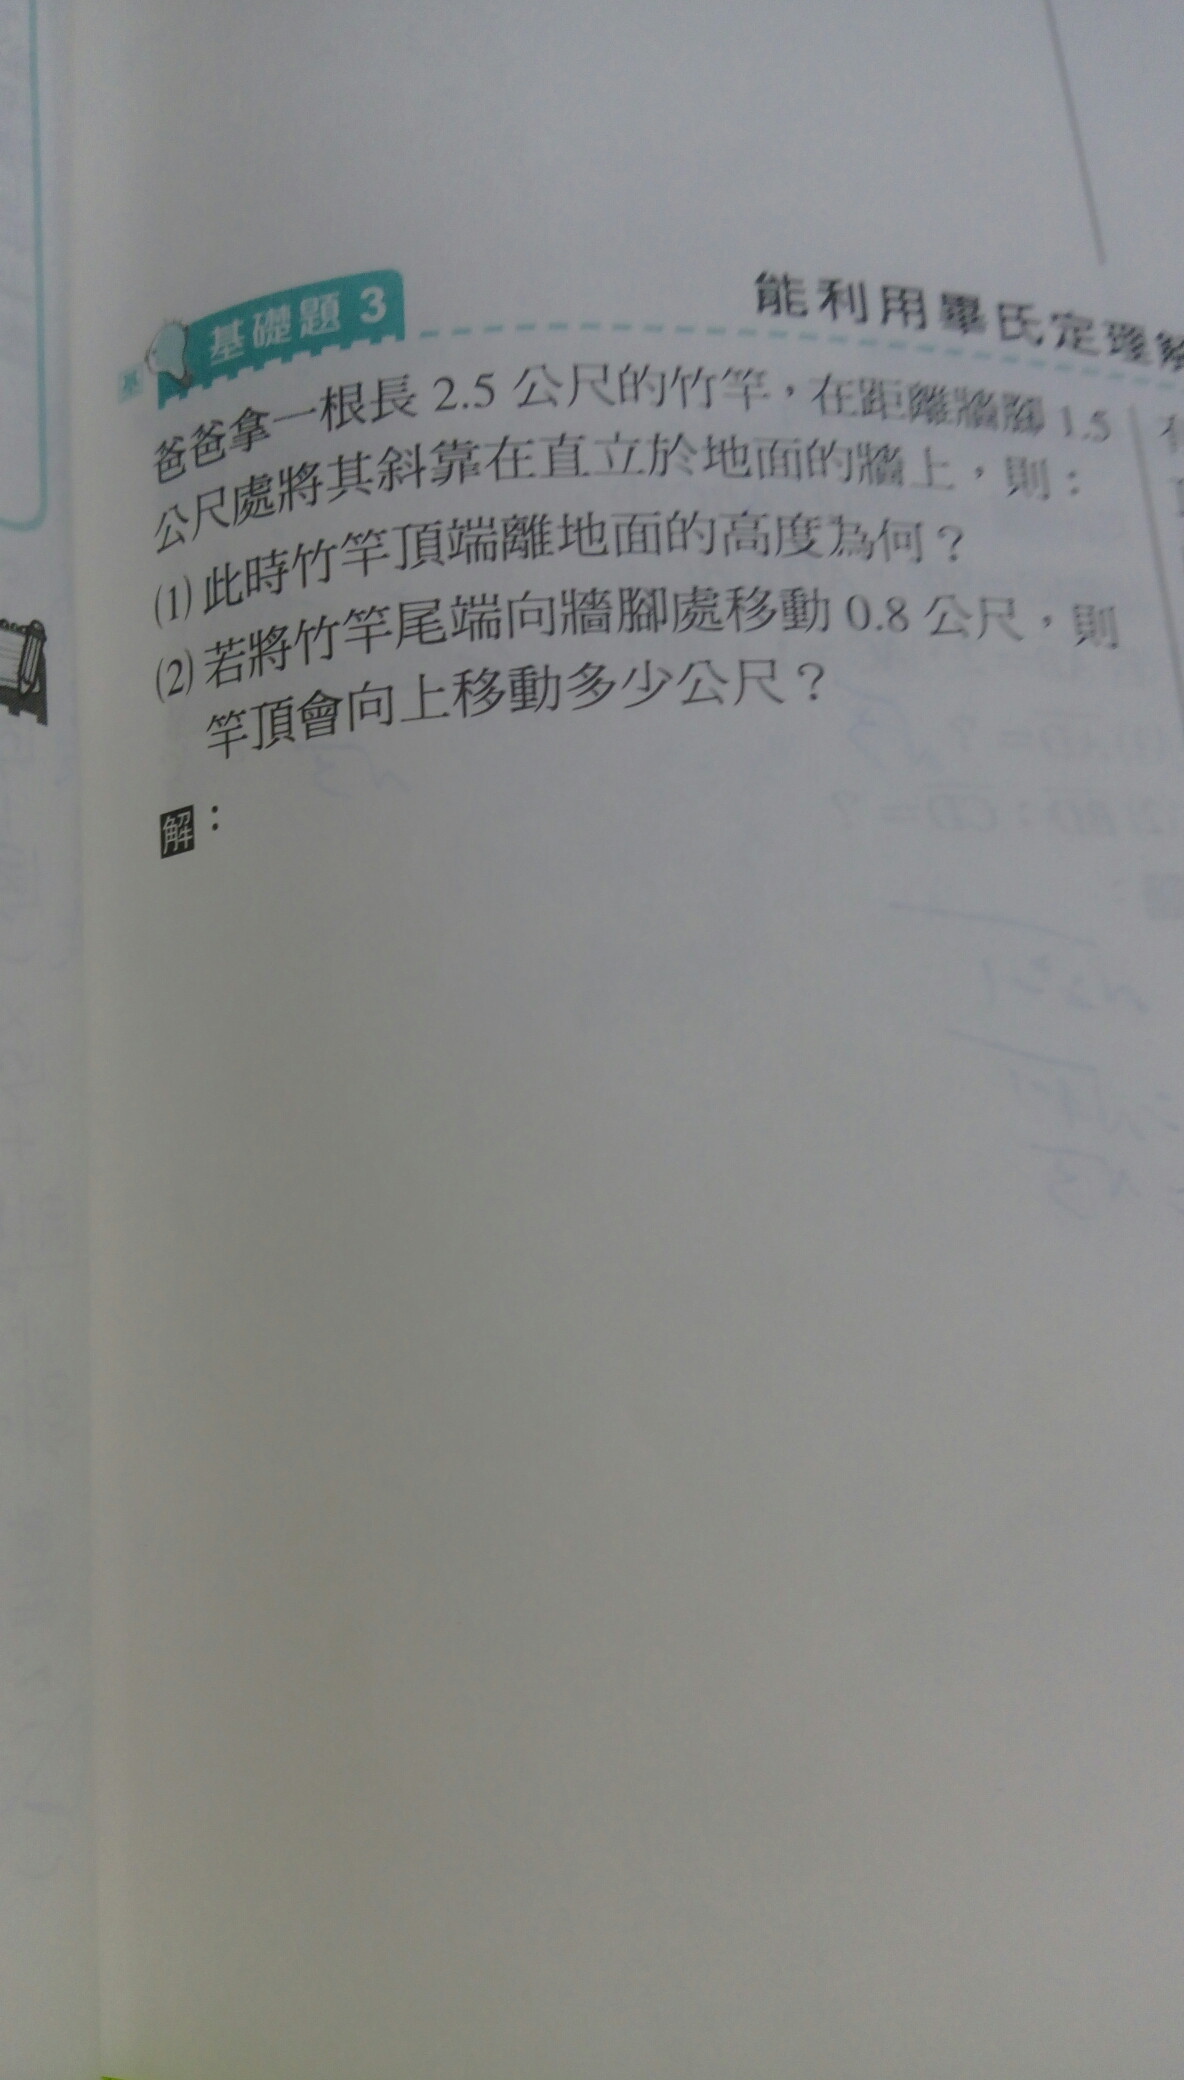 基礎題 3
能利用畢氏定理解
爸爸拿一根長 2.5 公尺的竹竿，在距離牆腳 1.5
公尺處將其斜靠在直立於地面的牆上，則：
(1) 此時竹竿頂端離地面的高度為何？
(2) 若將竹竿尾端向牆腳處移動 0.8 公尺，則
竿頂會向上移動多少公尺？
解：